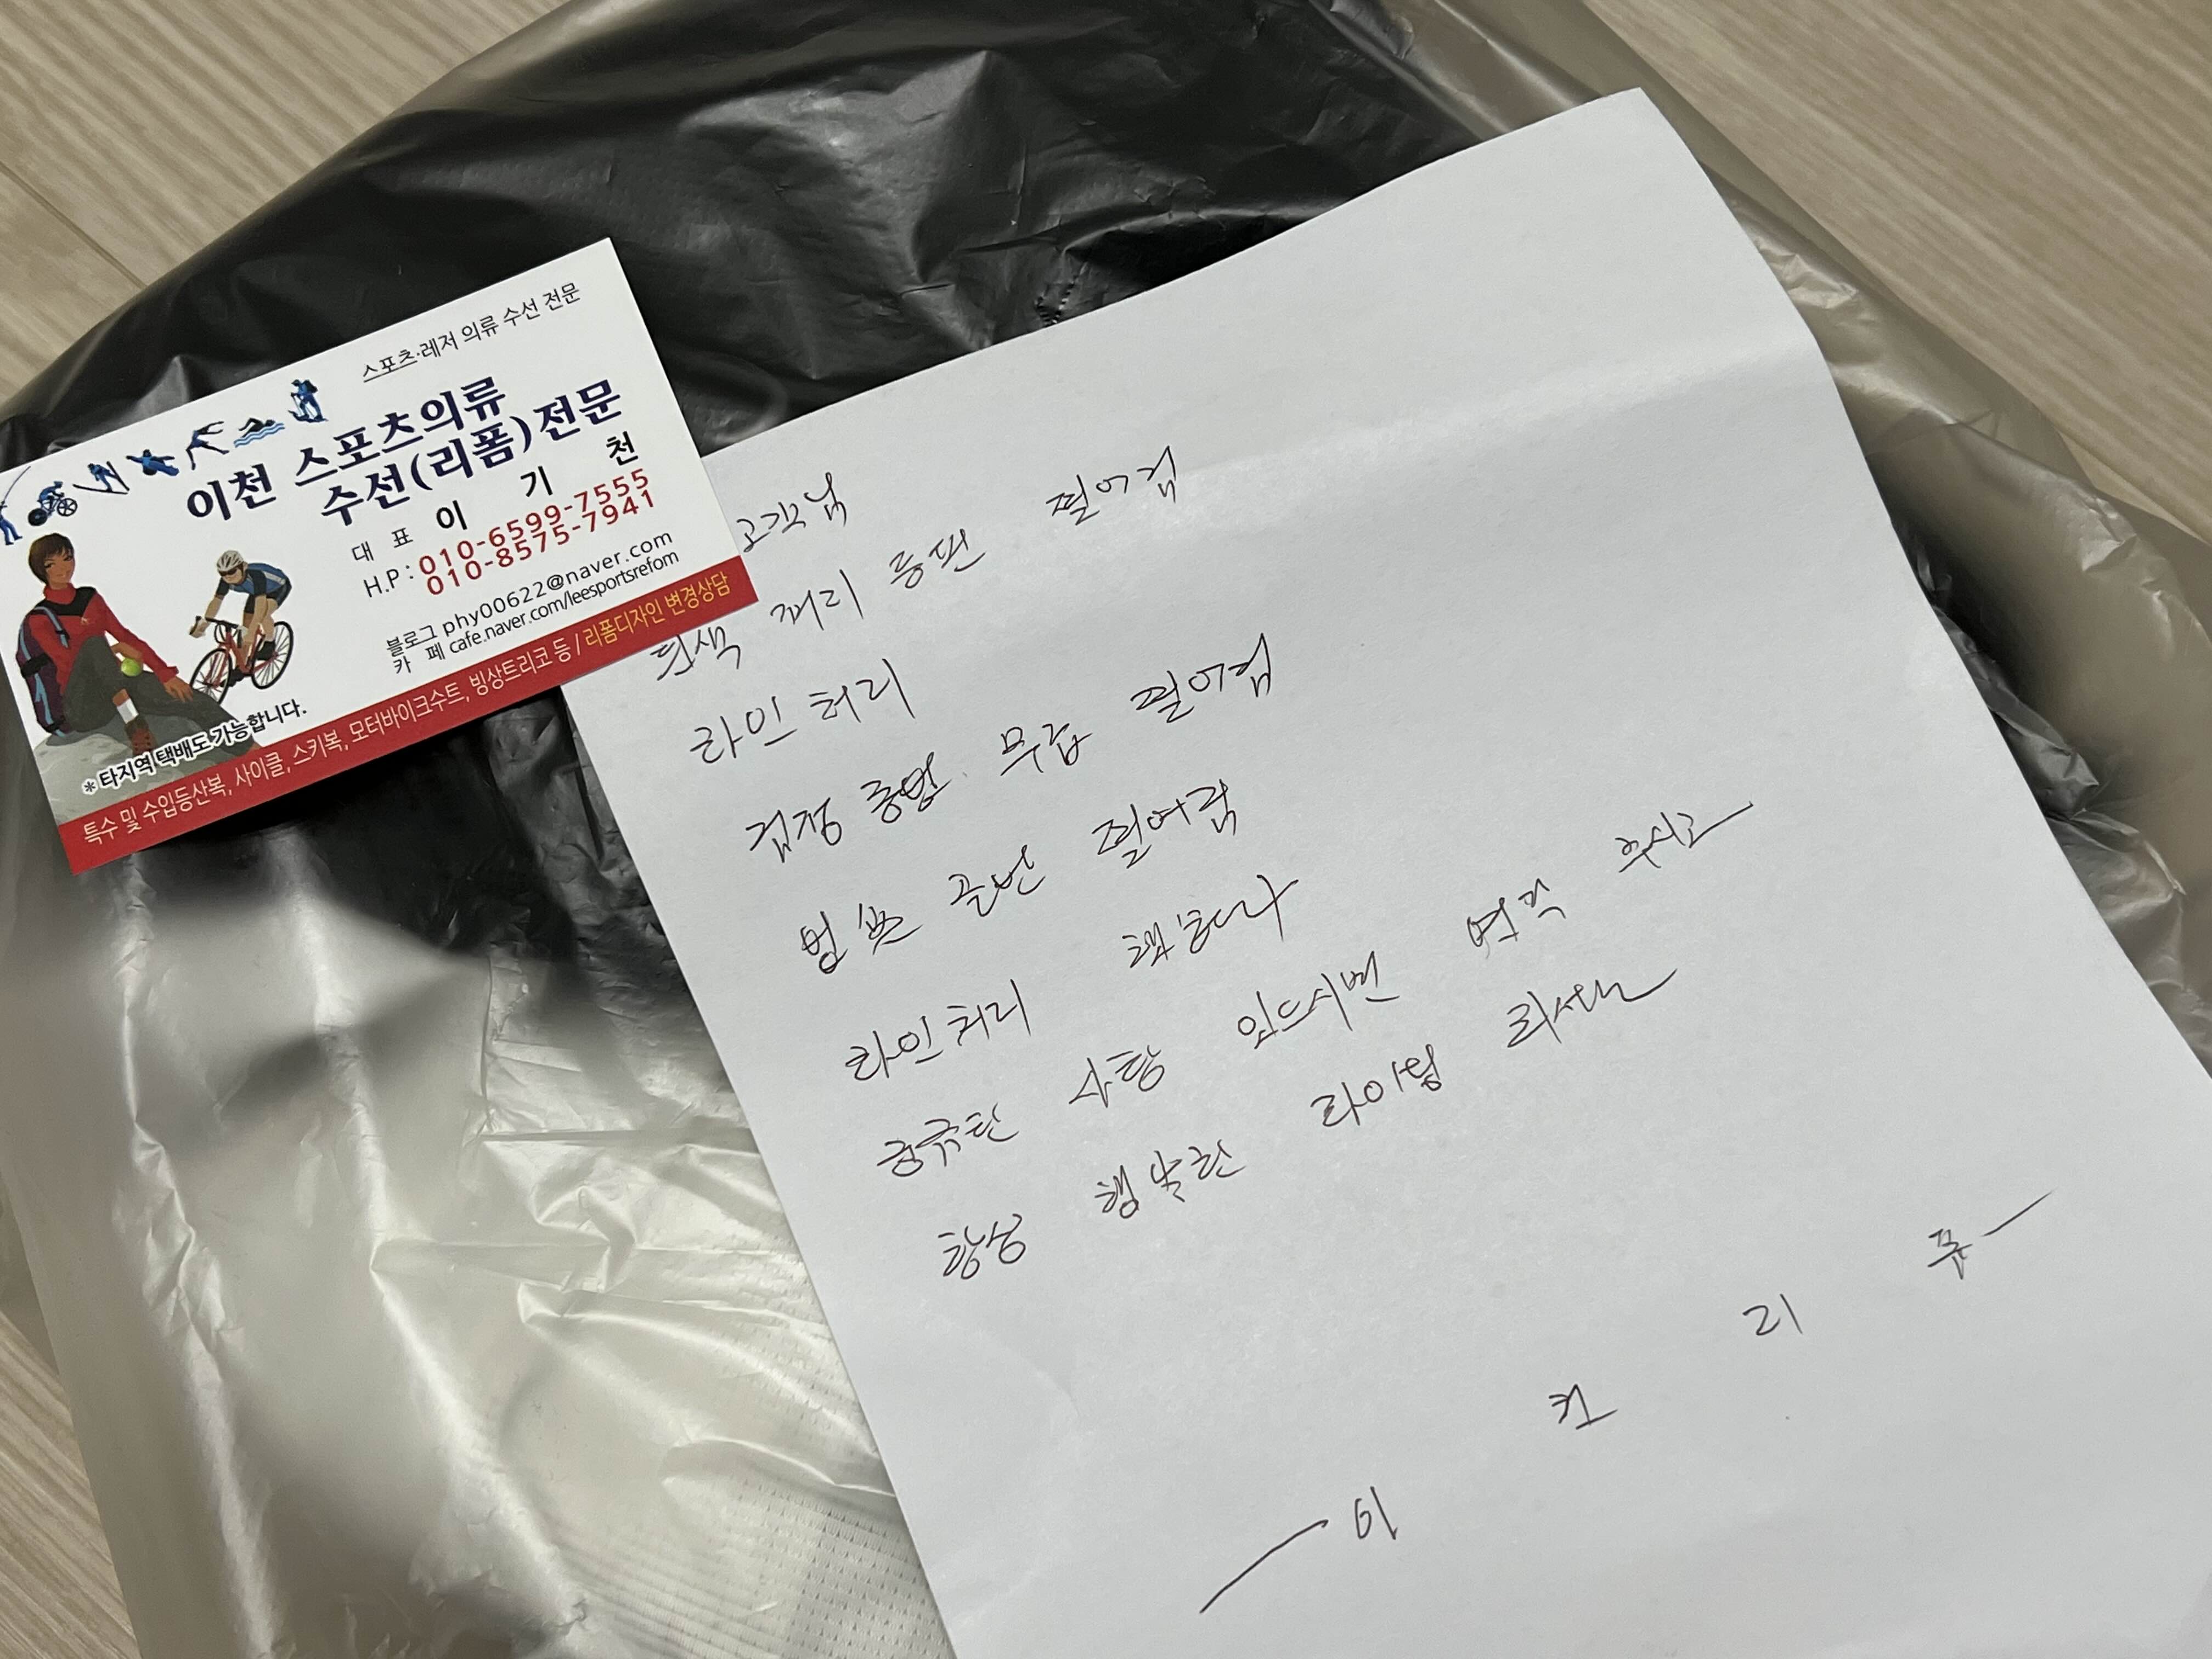 스포츠·레저 의류 수선 전문
이천 스포츠의류
수선(리폼)전문
대 표 이 기 천
H.P : 010-6599-7555
010-8575-7941
블로그 phy00622@naver.com
카 페 cafe.naver.com/leesportsrefom
* 타지역 택배도 가능합니다.
특수 및 수입등산복, 사이클, 스키복, 모터바이크수트, 빙상트리코 등 / 리폼디자인 변경상담
고객님
흰색 져리 등판 찢어짐
라인 처리
검정 무릎 찢어짐
골반 찢어짐
라인 처리
궁금한 사항 있으시면 연락 주시고
항상 행복한 라이딩 되세요
이 천 리 폼